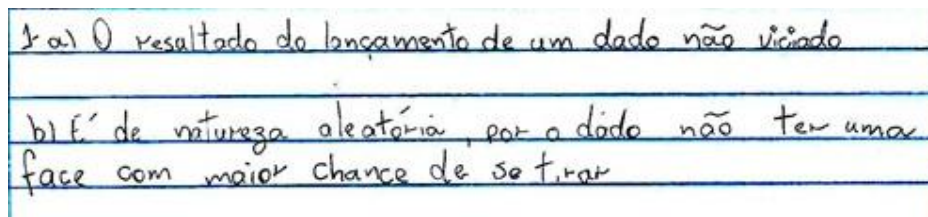 1-a) O resultado do lançamento de um dado não viciado
b) É de natureza aleatória, por o dado não ter uma
face com maior chance de se tirar